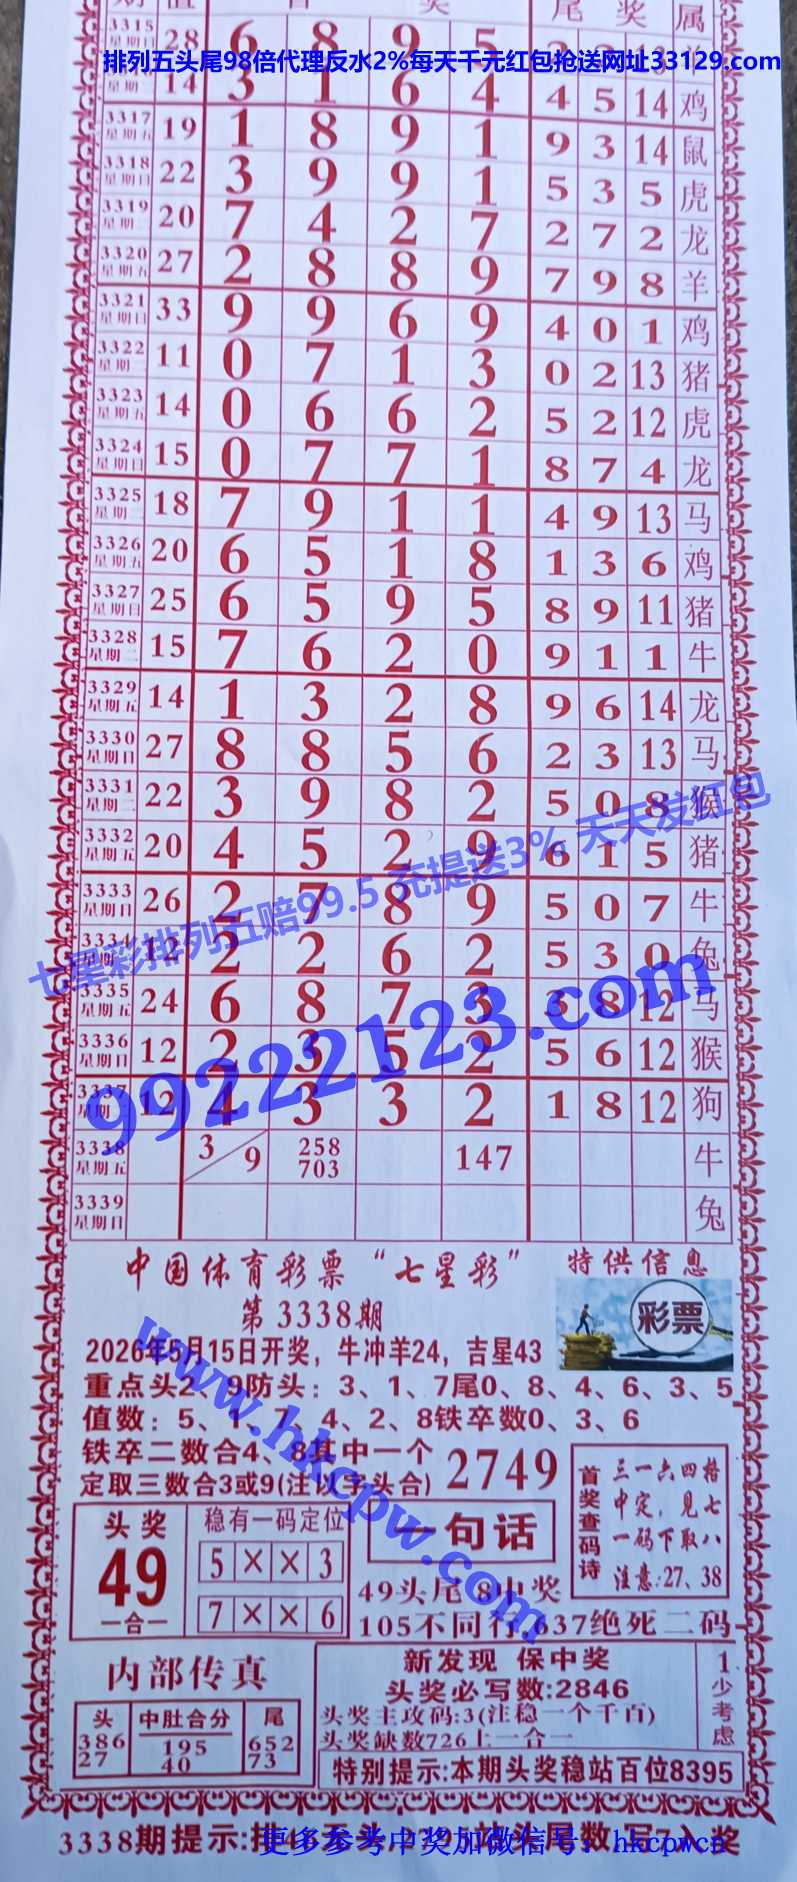 期 值 首 奖 尾 奖 属
3315 星期日 28 6 8 9 5 2 2 13 羊
排列五头尾98倍代理反水2%每天千元红包抢送网址33129.com
星期二 14 3 1 6 4 4 5 14 鸡
3317 星期五 19 1 8 9 1 9 3 14 鼠
3318 星期日 22 3 9 9 1 5 3 5 虎
3319 星期二 20 7 4 2 7 2 7 2 龙
3320 星期五 27 2 8 8 9 7 9 8 羊
3321 星期日 33 9 9 6 9 4 0 1 鸡
3322 星期二 11 0 7 1 3 0 2 13 猪
3323 星期五 14 0 6 6 2 5 2 12 虎
3324 星期日 15 0 7 7 1 8 7 4 龙
3325 星期二 18 7 9 1 1 4 9 13 马
3326 星期五 20 6 5 1 8 1 3 6 鸡
3327 星期日 25 6 5 9 5 8 9 11 猪
3328 星期二 15 7 6 2 0 9 1 1 牛
3329 星期五 14 1 3 2 8 9 6 14 龙
3330 星期日 27 8 8 5 6 2 3 13 马
3331 星期二 22 3 9 8 2 5 0 8 猴
3332 星期五 20 4 5 2 9 6 1 5 猪
七星彩排列五赔99.5 充提送3% 天天发红包
3333 星期日 26 2 7 8 9 5 0 7 牛
3334 星期二 12 2 2 6 2 5 3 0 兔
3335 星期五 24 6 8 7 3 3 8 12 马
3336 星期日 12 2 3 5 2 5 6 12 猴
99222123.com
3337 星期二 12 4 3 3 2 1 8 12 狗
3338 星期五 3/9 258 703 147 牛
3339 星期日 兔
中国体育彩票“七星彩” 特供信息
第3338期
彩票
2026年5月15日开奖，牛冲羊24，吉星43
重点头2、9防头：3、1、7尾0、8、4、6、3、5
值数：5、1、7、4、2、8铁卒数0、3、6
铁卒二数合4、8其中一个
定取三数合3或9(注以字头合)
2749
www.hkcpw.com
首奖查码诗
三一六四格
中定，见七
一码下取八
注意:27、38
头奖
49
一合一
稳有一码定位
5 × × 3
7 × × 6
一句话
49头尾 8中奖
105不同行,637绝死二码
内部传真
头 386 27
中肚合分 195 40
尾 652 73
新发现 保中奖
头奖必写数:2846
头奖主攻码:3(注稳一个千百)
头奖缺数726上一合一
1少考虑
特别提示:本期头奖稳站百位8395
3338期提示:
更多参考中奖加微信号: hkcpwcn